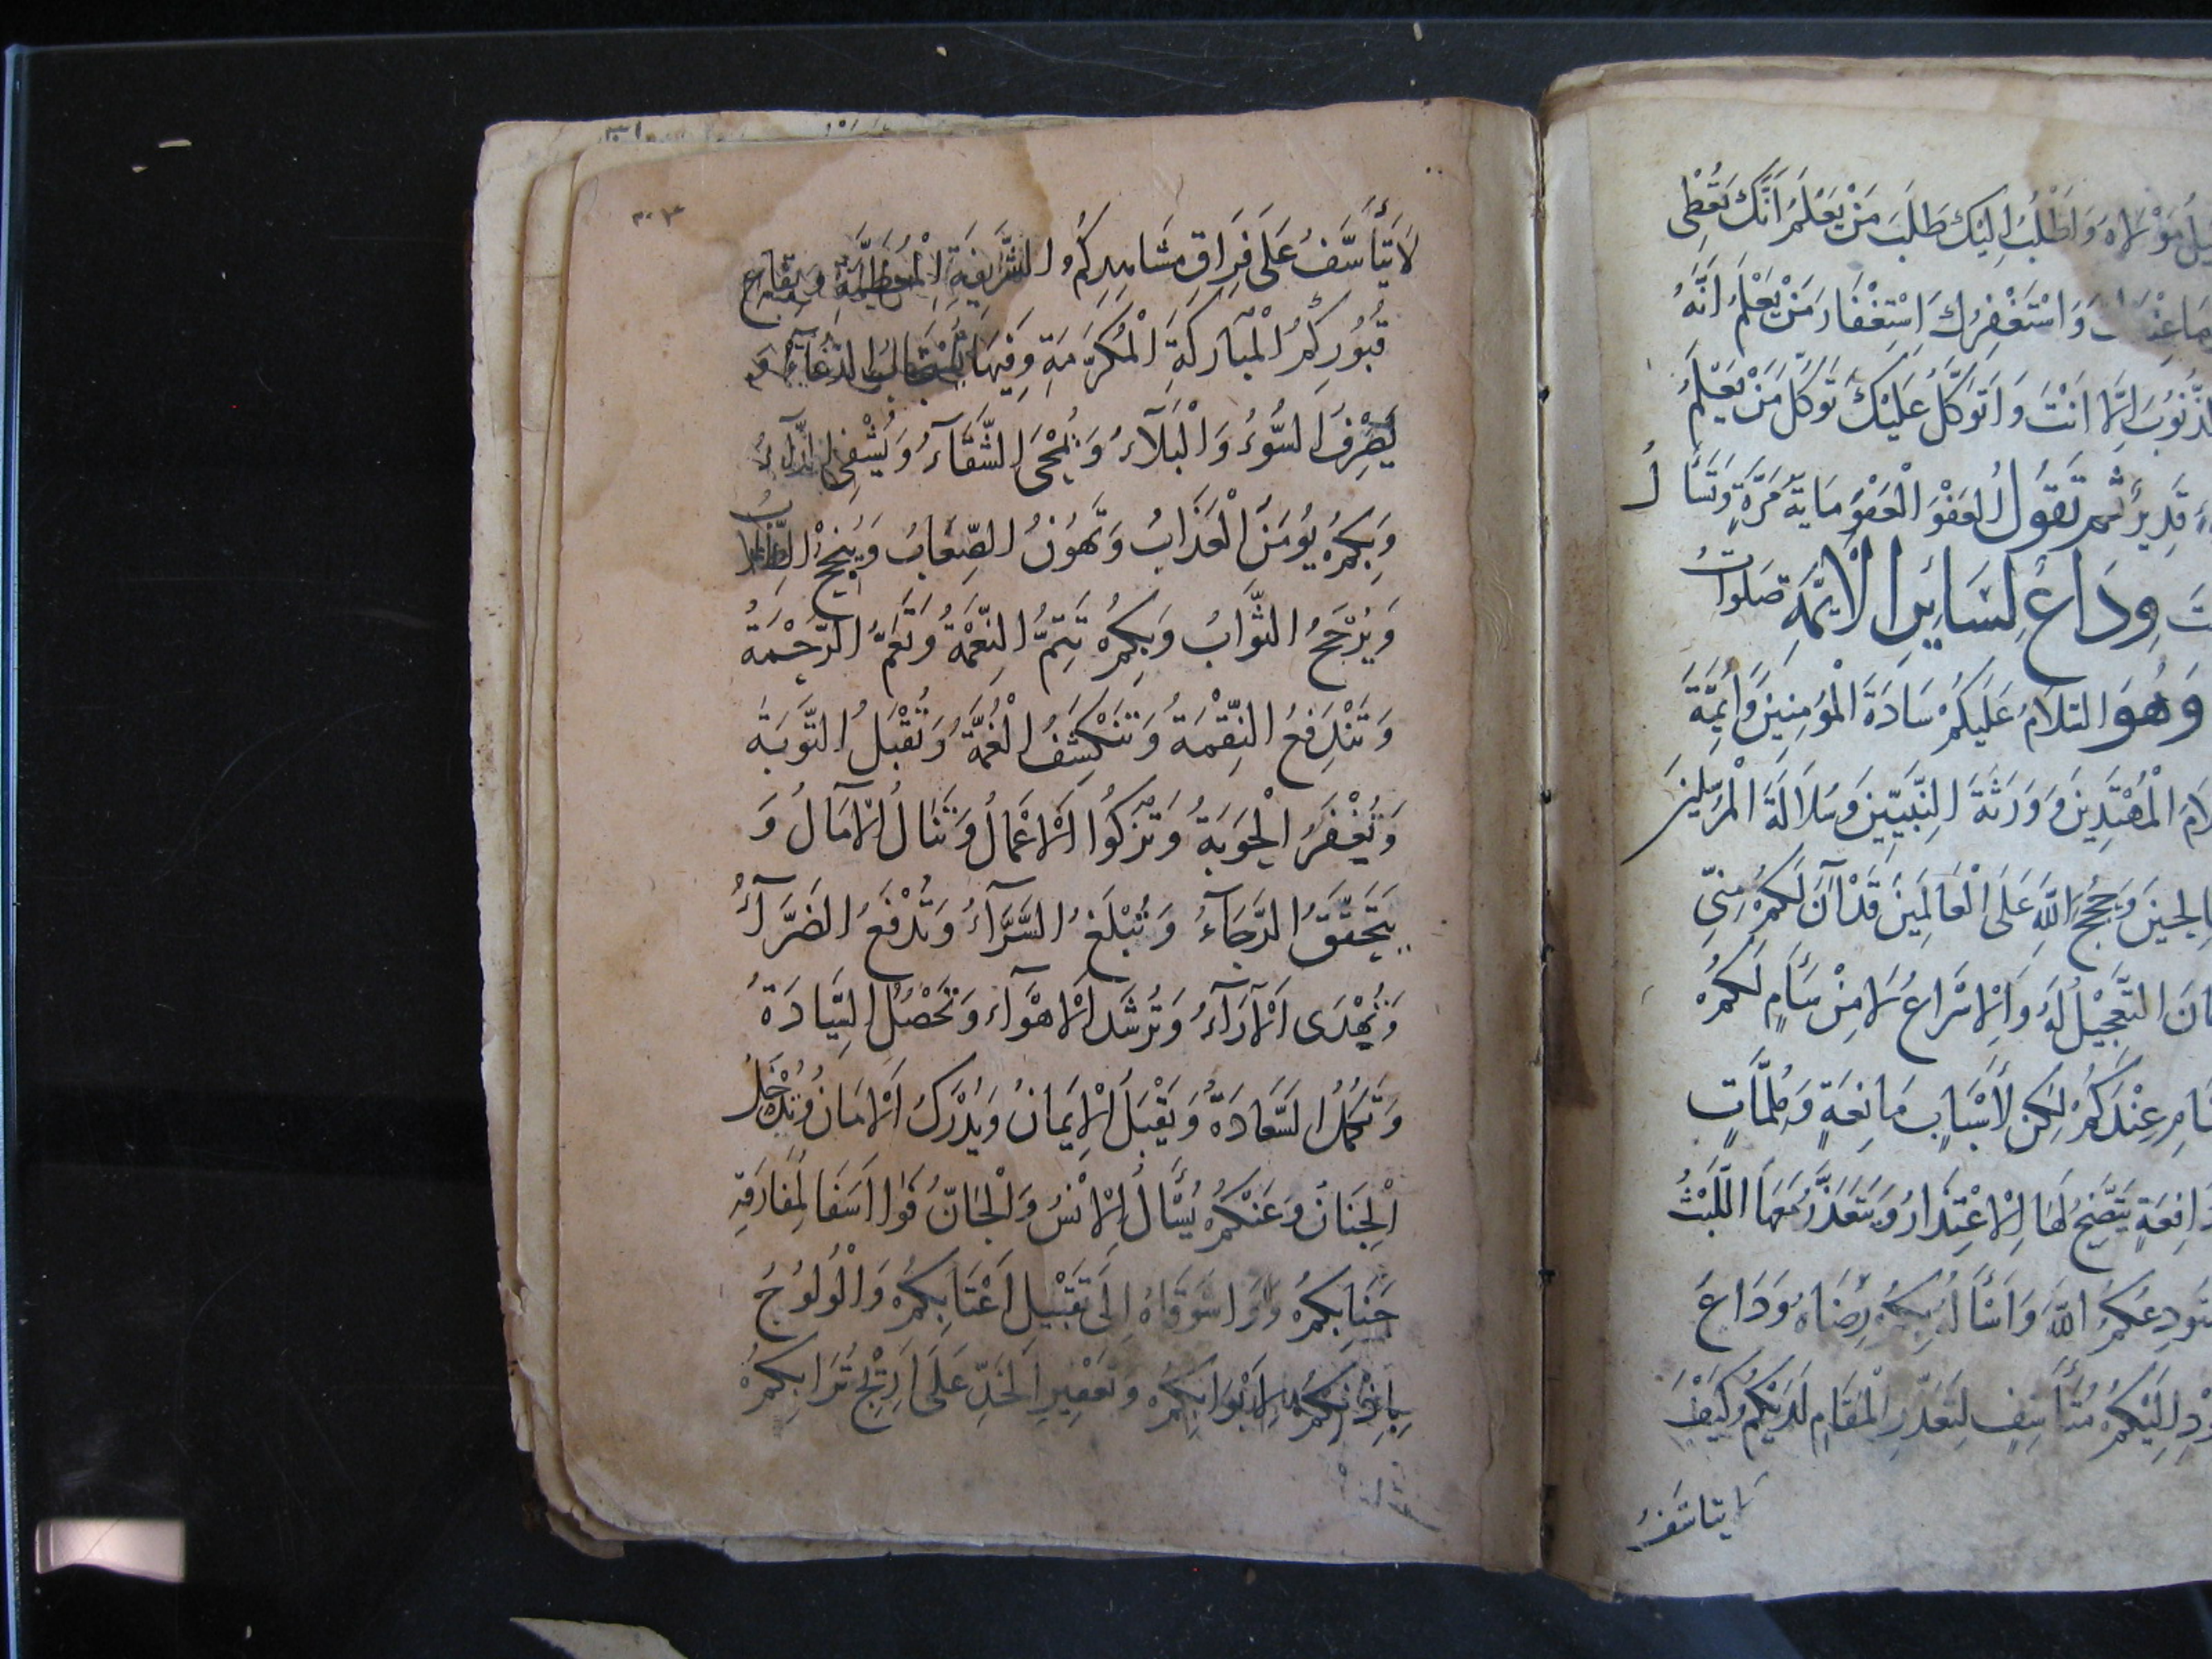 مَوْلَاهُ وَاَطْلُبُ اِلَيْكَ طَلَبَ مَنْ يَعْلَمُ اَنَّكَ تُعْطِى
وَاسْتَغْفِرُكَ اِسْتِغْفَارَ مَنْ يَعْلَمُ اَنَّهُ
الذُّنُوبَ اِلَّا اَنْتَ وَاَتَوَكَّلُ عَلَيْكَ تَوَكُّلَ مَنْ يَعْلَمُ
قَدِيرٌ ثُمَّ تَقُولُ اَلْعَفْوَ الْعَفْوَ مِايَةَ مَرَّةٍ وَتَسْاَلُ
وِدَاعٌ لِسَايِرِ الْاَيِمَّةِ صَلَوَاتُ
وَهُوَ السَّلَامُ عَلَيْكُمْ سَادَةَ الْمُؤْمِنِينَ وَاَيِمَّةَ
الْمُهْتَدِينَ وَوَرَثَةَ النَّبِيِّينَ وَسُلَالَةَ الْمُرْسَلِينَ
وَحُجَجَ اللّٰهِ عَلَى الْعَالَمِينَ قَدْ آنَ لَكُمْ مِنِّى
التَّعْجِيْلُ لَهُ وَالْاِسْرَاعُ لَا مِنْ سَاَمٍ لَكُمْ
عِنْدَكُمْ لٰكِنْ لِاَسْبَابٍ مَانِعَةٍ وَمُلِمَّاتٍ
يَتَّضِحُ لَهَا الْاِعْتِذَارُ وَيَتَعَذَّرُ مَعَهَا اللَّبْثُ
اللّٰهَ وَاَسْاَلُ بِكُمْ رِضَاهُ وَدَاعَ
اِلَيْكُمْ مُتَاَسِّفٍ لِتَعَذُّرِ الْمَقَامِ لَدَيْكُمْ وَكَيْفَ
لَا يَتَاَسَّفُ
٣٠٣
لَا يَتَاَسَّفُ عَلَى فِرَاقِ مَشَاهِدِكُمُ الشَّرِيفَةِ الْمُعَظَّمَةِ وَبِقَاعِ
قُبُورِكُمُ الْمُبَارَكَةِ الْمُكَرَّمَةِ وَفِيهَا يُسْتَجَابُ الدُّعَآءُ وَ
يُصْرَفُ السُّوءُ وَالْبَلَآءُ وَيُمْحَى الشَّقَآءُ وَيُشْفَى الدَّآءُ
وَبِكُمْ يُؤْمَنُ الْعَذَابُ وَتَهُونُ الصِّعَابُ وَيُنْجَحُ الطِّلَابُ
وَيُرْجَحُ الثَّوَابُ وَبِكُمْ تَتِمُّ النِّعْمَةُ وَتَعُمُّ الرَّحْمَةُ
وَتَنْدَفِعُ النِّقْمَةُ وَتَنْكَشِفُ الْغُمَّةُ وَتُقْبَلُ التَّوْبَةُ
وَتُغْفَرُ الْحَوْبَةُ وَتَزْكُوا الْاَعْمَالُ وَتُنَالُ الْاٰمَالُ وَ
يَتَحَقَّقُ الرَّجَآءُ وَتُبْلَغُ السَّرَّآءُ وَتُدْفَعُ الضَرَّآءُ
وَتُهْدَى الْآرَآءُ وَتُرْشَدُ الْاَهْوَآءُ وَتَحْصُلُ السِّيَادَةُ
وَتَكْمُلُ السَّعَادَةُ وَيُقْبَلُ الْاِيمَانُ وَيُدْرَكُ الْاَمَانُ وَتُدْخَلُ
الْجِنَانُ وَعَنْكُمْ يُسْاَلُ الْاِنْسُ وَالْجَانُّ فَوَا اَسَفَا لِمُفَارَقَةِ
جَنَابِكُمْ وَوَا شَوْقَاهُ اِلَى تَقْبِيْلِ اَعْتَابِكُمْ وَالْوُلُوجُ
بِاِذْنِكُمْ لِاَبْوَابِكُمْ وَتَعْفِيرِ الْخَدِّ عَلَى اَرِيْجِ تُرَابِكُمْ